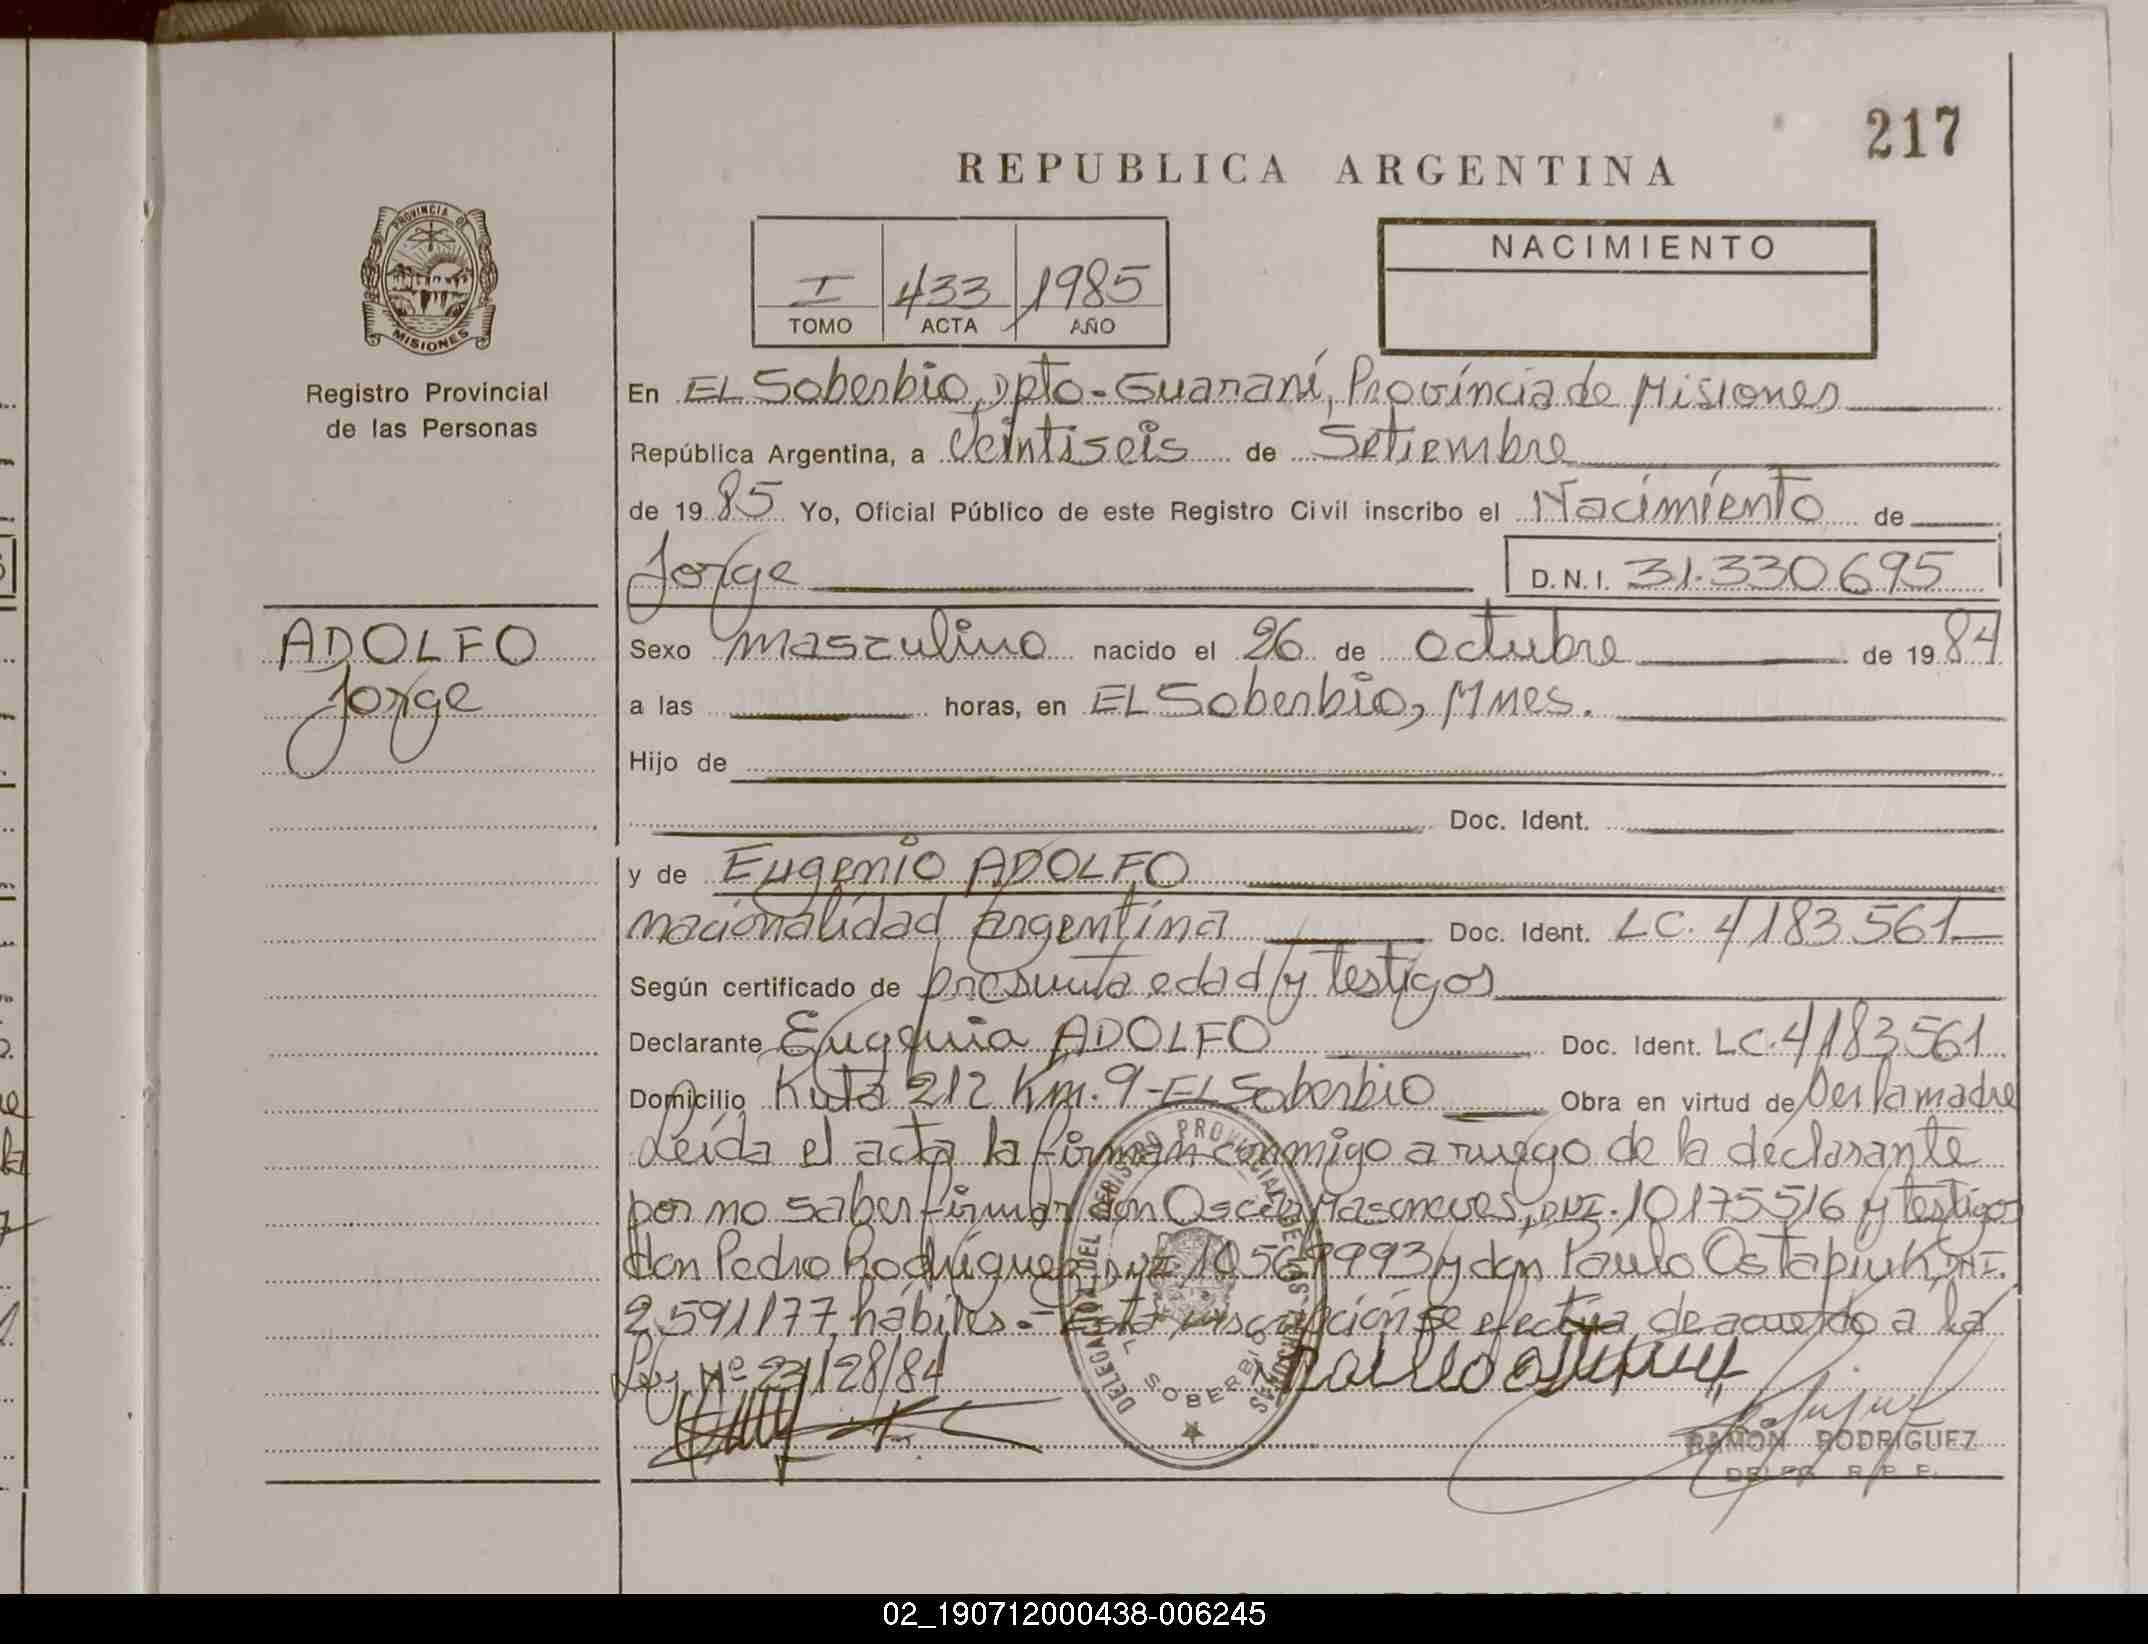 217
REPUBLICA ARGENTINA
PROVINCIA DE
MISIONES
Registro Provincial
de las Personas
NACIMIENTO
I 433 1985
TOMO ACTA AÑO
En EL Soberbio, Dpto-Guaraní, Província de Misiones
República Argentina, a Veintiseis de Setiembre
de 1985 Yo, Oficial Público de este Registro Civil inscribo el Nacimiento de
Jorge D.N.I. 31.330695
ADOLFO
Jorge
Sexo masculino nacido el 26 de octubre de 1984
a las horas, en EL Soberbio, Mnes.
Hijo de
Doc. Ident.
y de Eugenio ADOLFO
nacionalidad argentina Doc. Ident. LC. 4183561
Según certificado de presunta edad y testigos
Declarante Eugenia ADOLFO Doc. Ident. LC. 4183561
Domicilio Ruta 212 Km. 9-EL Soberbio Obra en virtud de Der la madre
Leída el acta la firman conmigo a ruego de la declarante
por no saber firmar don Oscar DNI. 10175516 y testigos
don Pedro Rodriguez DNI 10.569993 y don Paulo Ostapiuk DNI.
2.591177, hábiles.- Esta inscripción se efectúa de acuerdo a la
Ley Nº 23128/84
DELEGACION DEL REGISTRO PROVINCIAL DE LAS PERSONAS
EL SOBERBIO
RAMON RODRIGUEZ
02_190712000438-006245